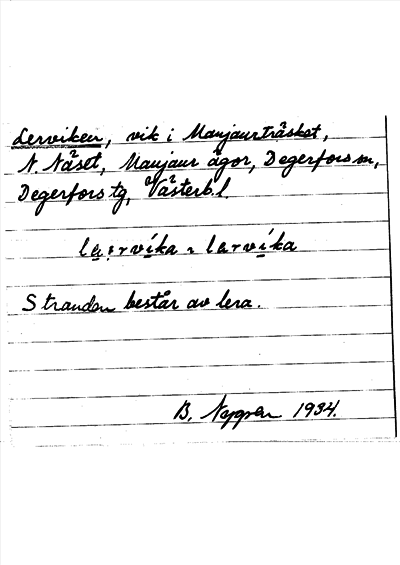 Lerviken, vik i Manjaurträsket,
N. Näset, Manjaur ägor, Degerfors sn,
Degerfors tg, Västerb.l.
la:rvika ~ larvika
Stranden består av lera.
B. Nygren 1934.